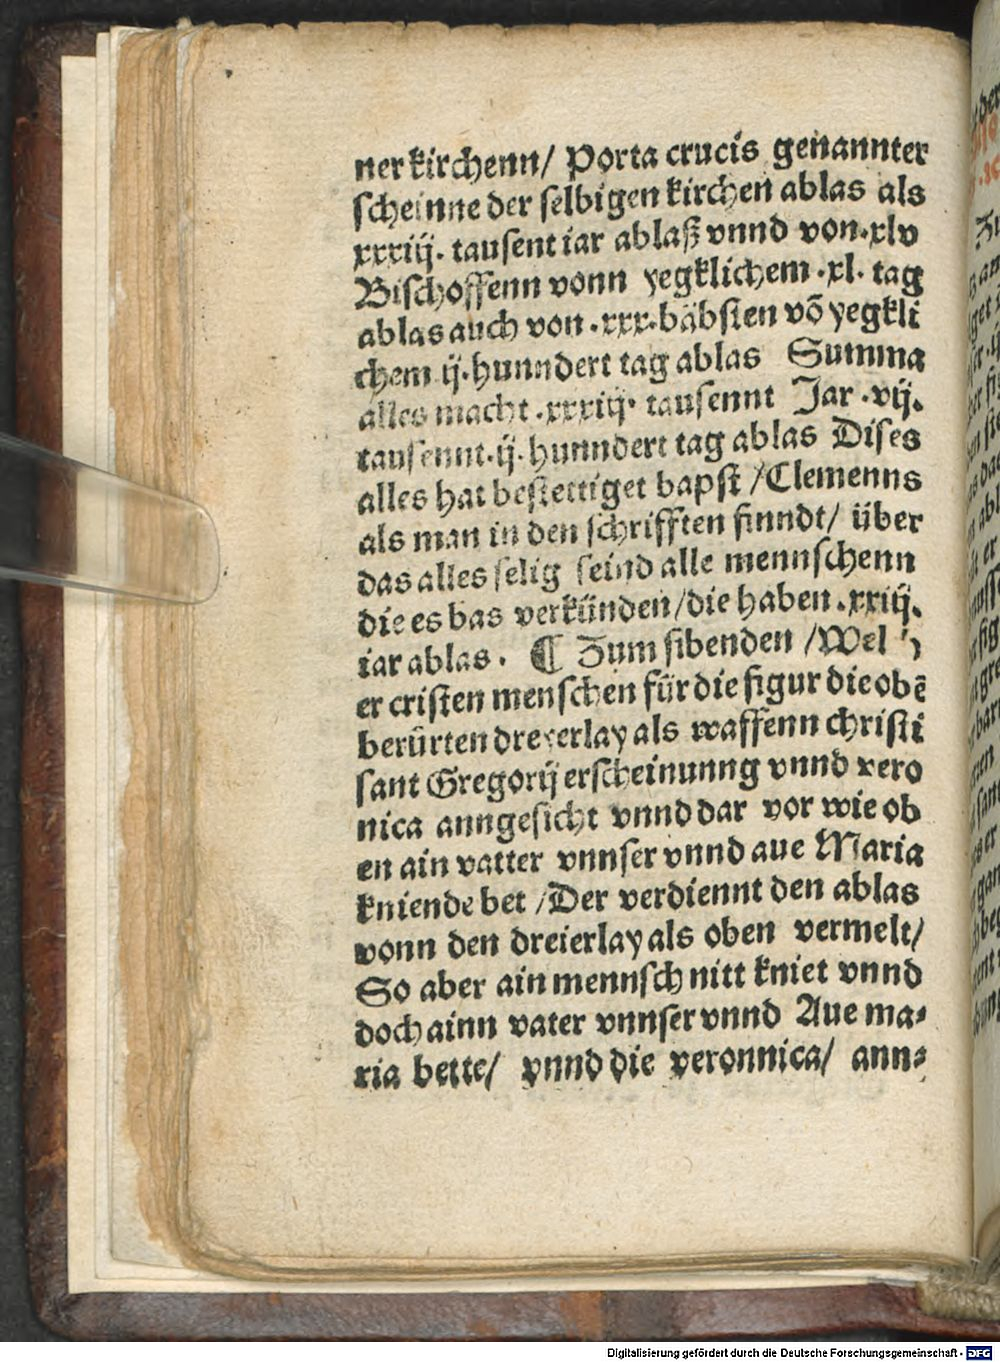 ner kirchenn/ Porta crucis genannter
scheinne der selbigen kirchen ablas als
xxxiij. tausent iar ablaß vnnd von .xlv
Bischoffenn vonn yegklichem .xl. tag
ablas auch von .xxx. bäbsten võ yegkli
chem ij. hunndert tag ablas Summa
alles macht .xxxiij. tausennt Jar .vij.
tausennt .ij. hunndert tag ablas Dises
alles hat bestettiget bapst /Clemenns
als man in den schrifften finndt/ über
das alles selig seind alle mennschenn
die es bas verkünden/die haben .xxiij.
iar ablas. ¶ Zum sibenden /Wel
er cristen menschen für die figur die obẽ
berûrten dreyerlay als waffenn christi
sant Gregorij erscheinunng vnnd vero
nica anngesicht vnnd dar vor wie ob
en ain vatter vnnser vnnd aue Maria
kniende bet /Der verdiennt den ablas
vonn den dreierlay als oben vermelt/
So aber ain mennsch nitt kniet vnnd
doch ainn vater vnnser vnnd Aue ma⸗
ria bette/ vnnd die veronnica/ ann⸗
Digitalisierung gefördert durch die Deutsche Forschungsgemeinschaft - DFG